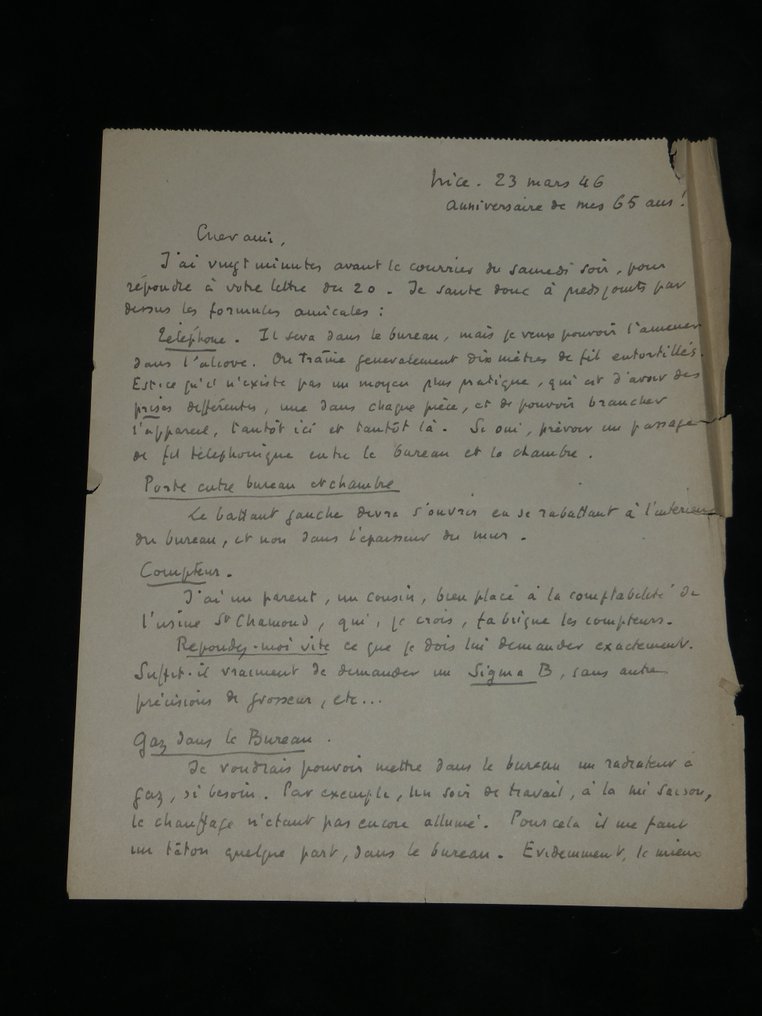 Nice. 23 mars 46
anniversaire de mes 65 ans !
Cher ami,
J'ai vingt minutes avant le courrier du samedi soir, pour
répondre à votre lettre du 20. Je saute donc à pieds joints par
dessus les formules amicales :
Téléphone. Il sera dans le bureau, mais je veux pouvoir l'amener
dans l'alcove. On traîne generalement dix mètres de fil entortillés.
Est ce qu'il n'existe pas un moyen plus pratique, qui est d'avoir des
prises différentes, une dans chaque pièce, et de pouvoir brancher
l'appareil, tantôt ici et tantôt là. Si oui, prévoir un passage
de fil téléphonique entre le bureau et la chambre.
Porte entre bureau et chambre
Le battant gauche devra s'ouvrir en se rabattant à l'intérieur
du bureau, et non dans l'épaisseur du mur.
Compteur.
J'ai un parent, un cousin, bien placé à la comptabilité de
l'usine St Chamond, qui, je crois, fabrique les compteurs.
Répondez-moi vite ce que je dois lui demander exactement.
Suffit-il vraiment de demander un Sigma B, sans autre
précisions de grosseur, etc...
Gaz dans le Bureau.
Je voudrais pouvoir mettre dans le bureau un radiateur à
gaz, si besoin. Par exemple, un soir de travail, à la mi saison,
le chauffage n'étant pas encore allumé. Pour cela il me faut
un têton quelque part, dans le bureau. Evidemment, le mieux